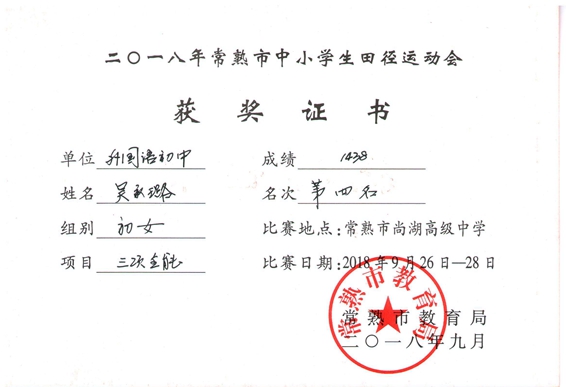 二〇一八年常熟市中小学生田径运动会
获奖证书
单位 外国语初中 成绩 1438
姓名 吴 名次 第四名
组别 初女 比赛地点:常熟市尚湖高级中学
项目 三项全能 比赛日期:2018年9月26日—28日
常熟市教育局
常熟市教育局
二〇一八年九月